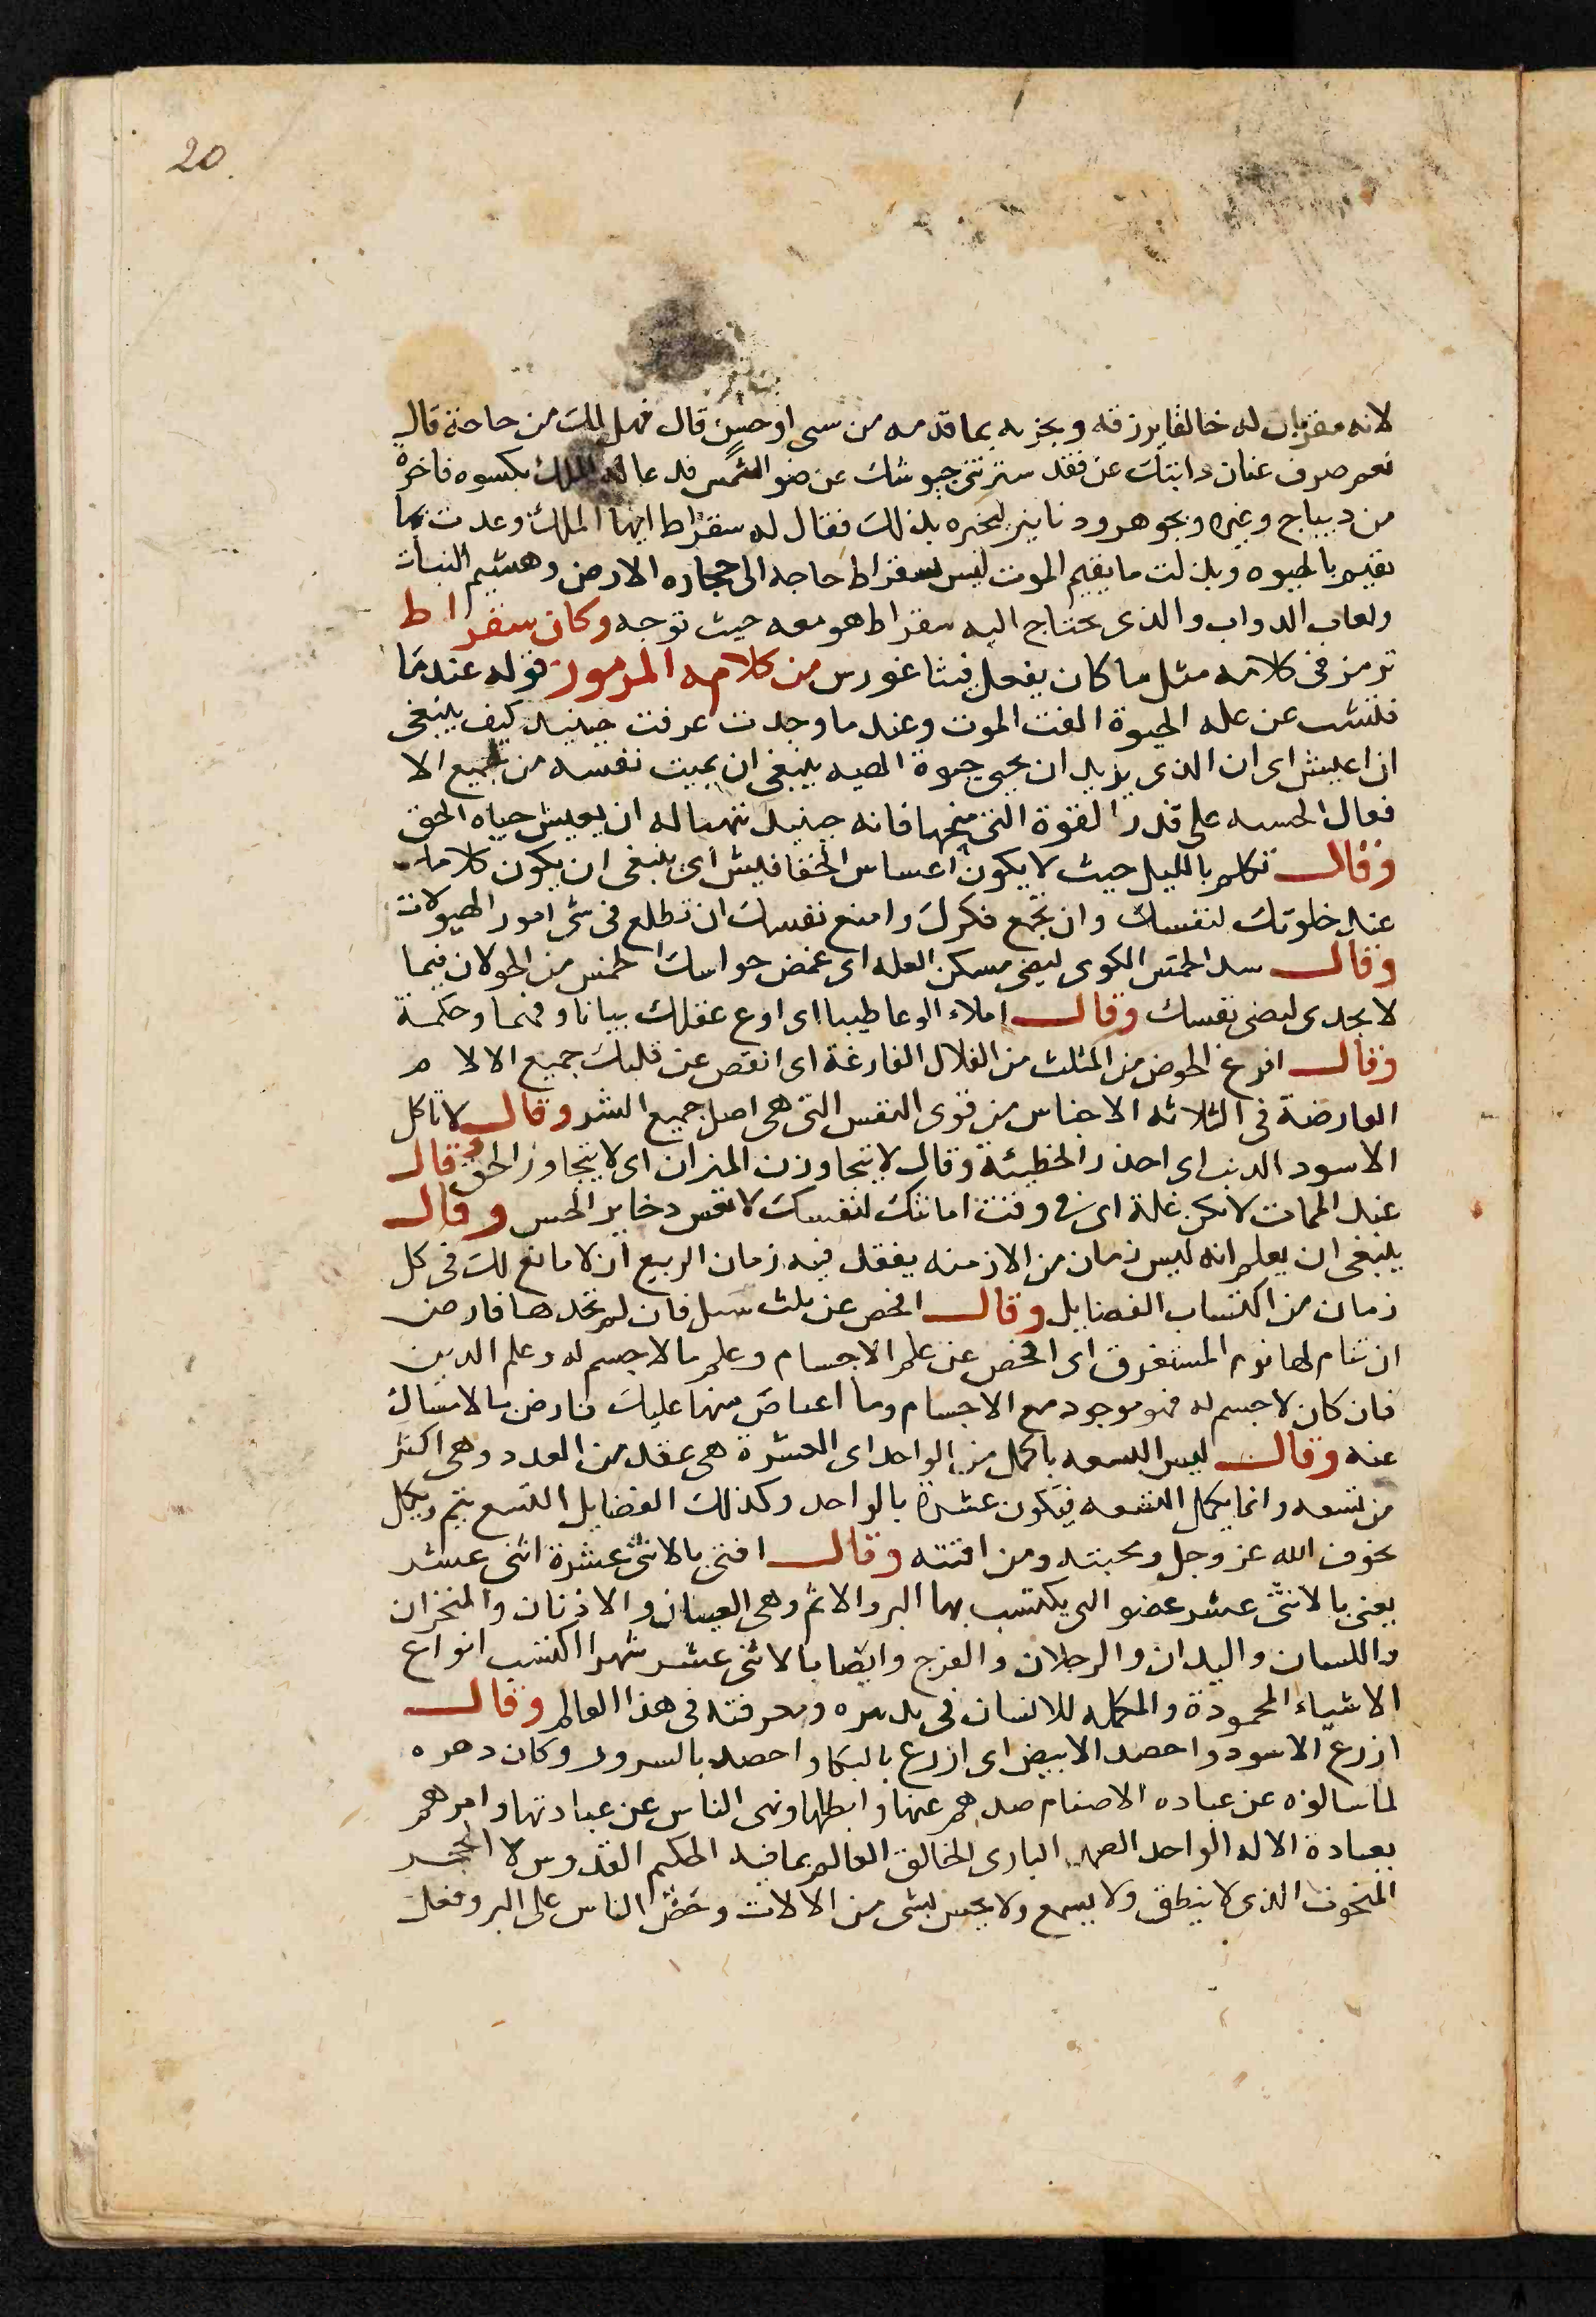 20
لانه مقر بان له خالقا يرزقه ويجزيه بما قدمه من سى او حسن قال فهل لك من حاجة قال
نعم صرف عنان دابتك عنى فقد سترتنى جيوشك عن ضو الشمس فدعا له الملك بكسوه فاخرة
من ديباج وغيره وبجوهر ودنانير ليخبره بذلك فقال له سقراط ايها الملك وعدت بما
يقيم بالحيوه وبذلت ما يقيم الموت ليس لسقراط حاجه الى حجاره الارض وهشيم النبات
ولعاب الدواب والذى يحتاج اليه سقراط هو معه حيث توجه وكان سقراط
ترمز فى كلامه مثل ما كان يفعل فيثاغورس من كلامه المرموز قوله عندما
فتشت عن عله الحيوة الفت الموت وعندما وجدت عرفت حينيذ كيف ينبغى
ان اعيش اى ان الذى يريد ان يحيى حيوة الهيه ينبغى ان يميت نفسه من جميع الا
فعال الحسيه على قدر القوة التى منحها فانه حينيذ تتهيا له ان يعيش حياه الحق
وقال تكلم بالليل حيث لا يكون اعساس الخفافيش اى ينبغى ان يكون كلامك
عند خلوتك لنفسك وان تجمع فكرك وامنع نفسك ان تطلع فى شى امور الهيولانت
وقال سد الخمس الكوى ليضى مسكن العله اى غمض حواسك الخمس من الجولان فيما
لا يجدى ليضى نفسك وقال املاء الوعا طيبا اى اوع عقلك بيانا وفهما وحكمة
وقال افرغ الحوض من المثلث من القلال الفارغة اى انقص عن قلبك جميع الالام
العارضة فى الثلاثه الاجناس من قوى النفس التى هى اصل جميع الشر وقال لا تاكل
الاسود الذنب اى احذر الخطيئة وقال لا تتجاوزن الميزان اى لا يتجاوز الحق وقال
عند الممات لا تكن نملة اى فى وقت اماتتك لنفسك لا تقس دخاير الحس وقال
ينبغى ان يعلم انه ليس زمان من الازمنه يفقد فيه زمان الربيع اى لا مانع لك فى كل
زمان من اكتساب الفضايل وقال افحص عن ثلث سبل فان لم تجدها فارض
ان تنام لها نوم المستغرق اى افحص عن علم الاجسام وعلم ما لا جسم له وعلم الذين
فان كان لا جسم له فهو موجود مع الاجسام وما اعتاص منها عليك فارض بالامساك
عنه وقال ليس التسعه باكمل من الواحد اى العشرة هى عقد من العدد وهى اكثر
من تسعه وانما يكمل التسعه فيكون عشرة بالواحد وكذلك الفضايل التسع يتم ويكمل
بخوف الله عز وجل ومحبته ومراقبته وقال اقتنى بالاثنى عشرة اثنى عشر
يعنى بالاثنى عشر عضو التى يكتسب بها البر والاثم وهى العينان والاذنان والمنخران
واللسان واليدان والرجلان والفرج وايضا بالاثنى عشر شهرا اكتسب انواع
الاشياء المحمودة والمكمله للانسان فى تدبيره ومعرفته فى هذا العالم وقال
ازرع الاسود واحصد الابيض اى ازرع بالبكا واحصد بالسرور وكان دهره
لما سالوه عن عباده الاصنام صدهم عنها وابطلها ونهى الناس عن عبادتها وامرهم
بعبادة الاله الواحد الصمد البارى الخالق العالم بما فيه الحكيم القدوس لا الحجر
المنحوت الذى لا ينطق ولا يسمع ولا يحس بشى من الالات وحض الناس على البر وفعل